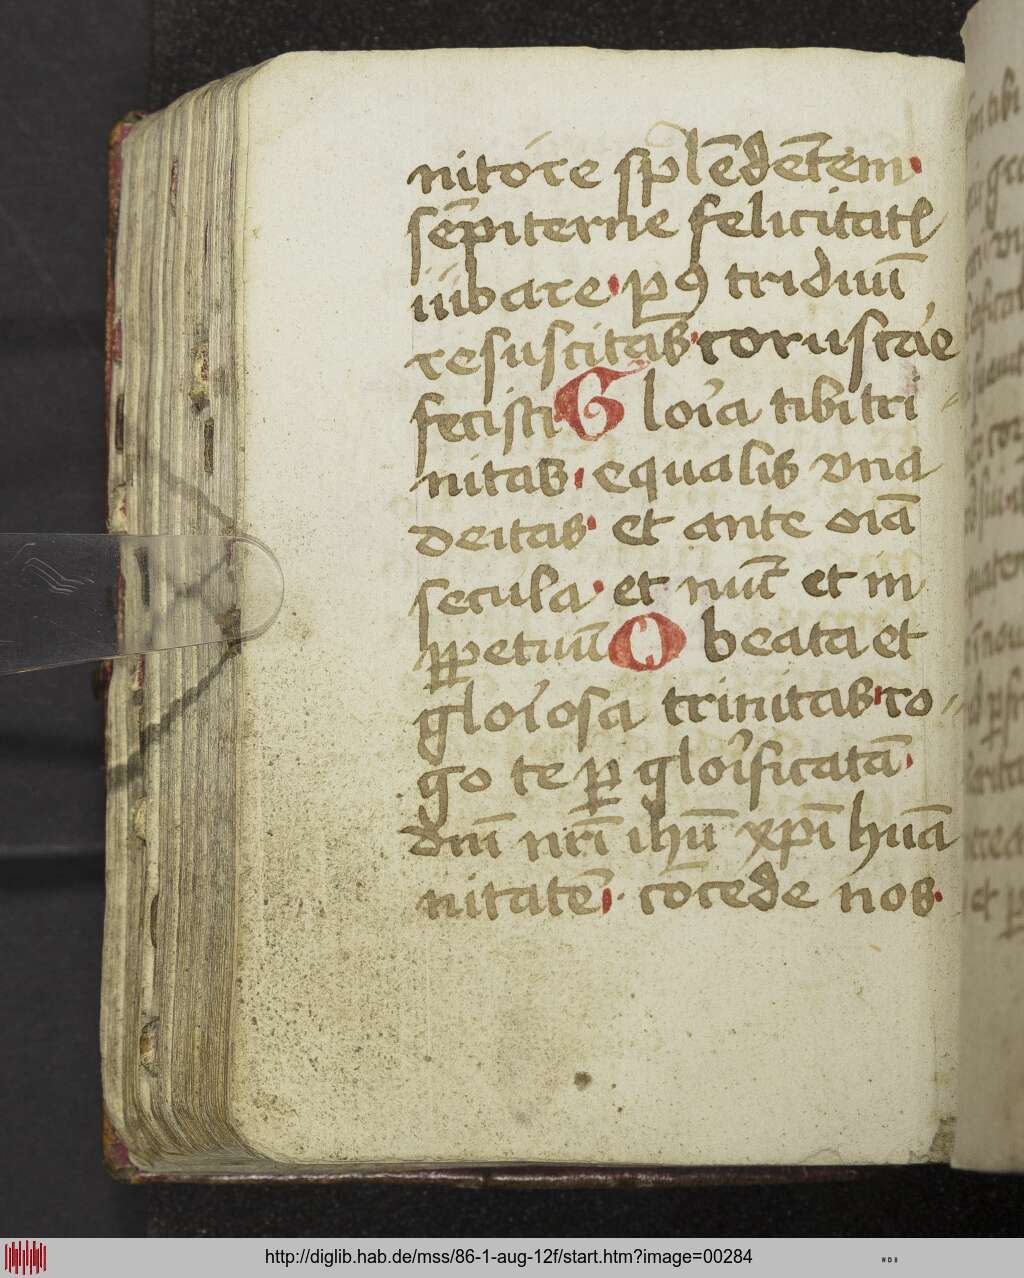 nitore splēdētem
sēpiterne felicitatꝭ
iubare ꝑꝯ triduū
resuscitās coruscāe
fecisti Gloīa tibi tri-
nitas equalis vna
deitas et ante oīa
secula et nūc et in
ꝑpetuū O beata et
gloīosa trinitas ro-
go te ꝑ gloīficatā
dnī nrī ihū xpī huā
nitatē cōcede nos
http://diglib.hab.de/mss/86-1-aug-12f/start.htm?image=00284